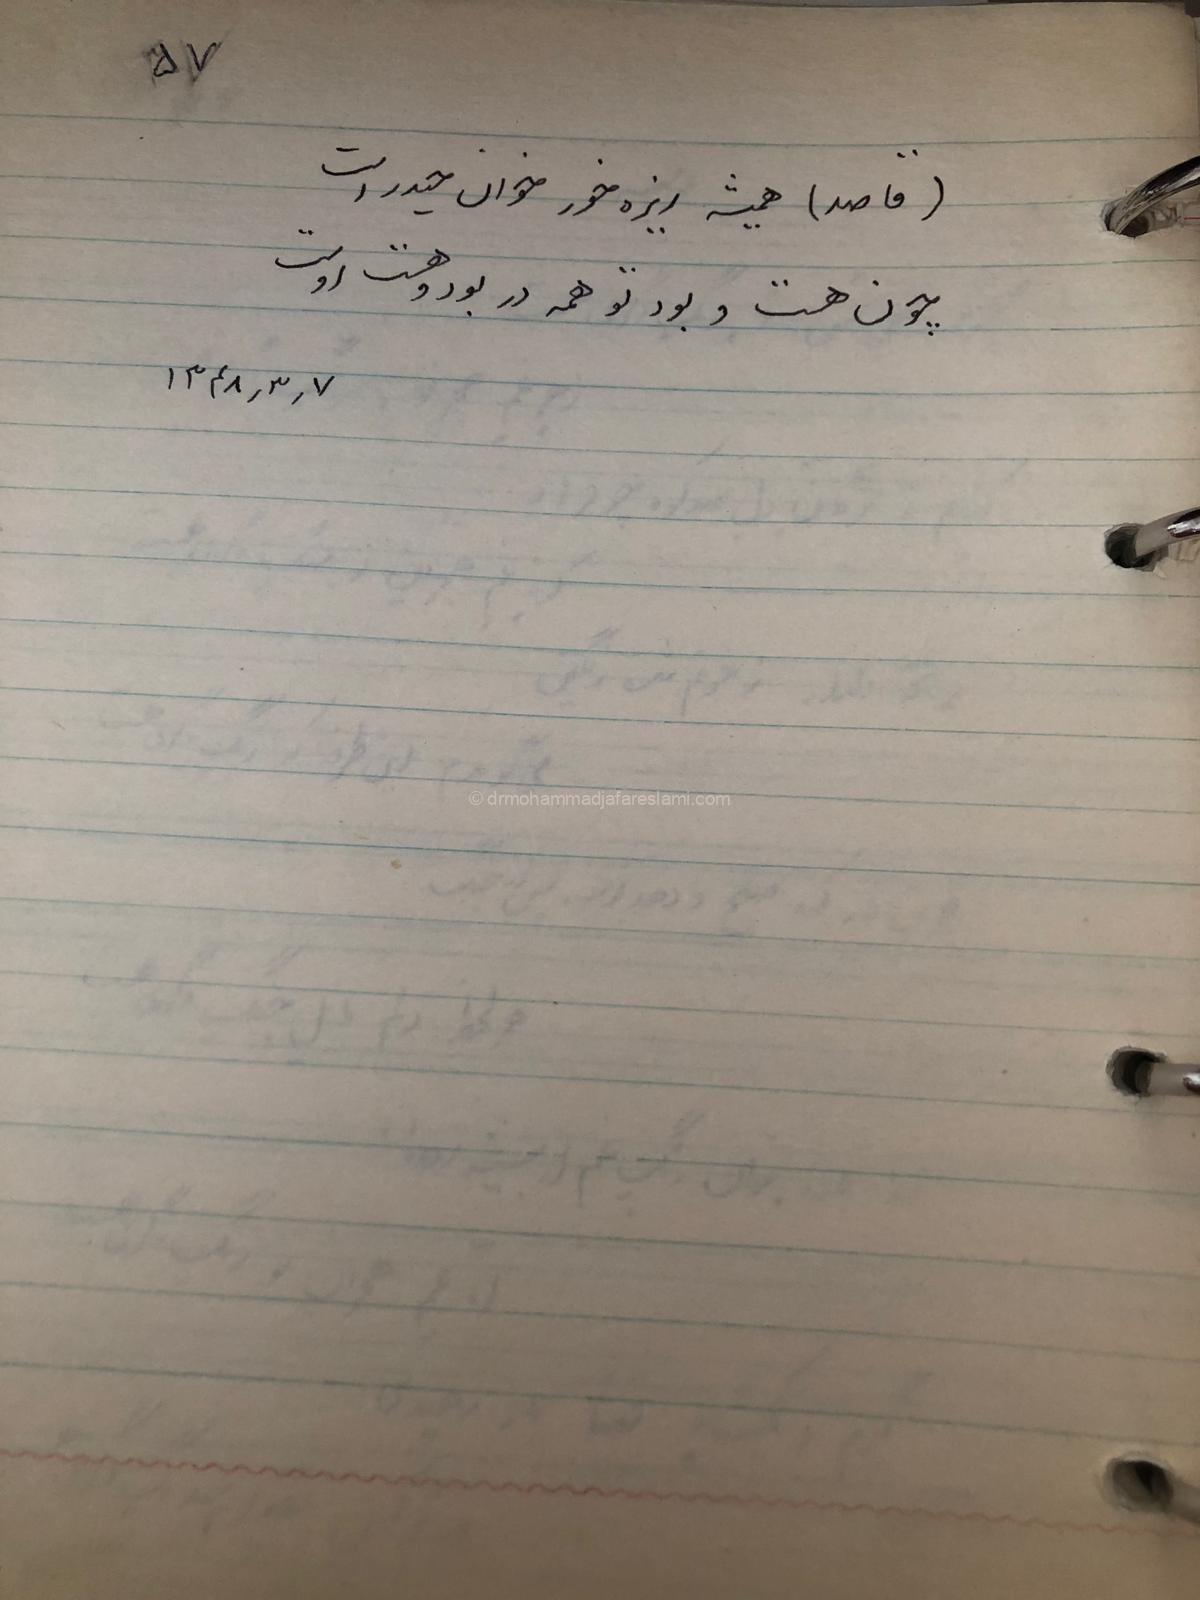 ۵۷
(قاصد) همیشه ریزه خور خوان حیدر است
چون هست و بود تو همه در بود و هست اوست
۱۳۴۸٫۳٫۷
© drmohammadjafareslami.com